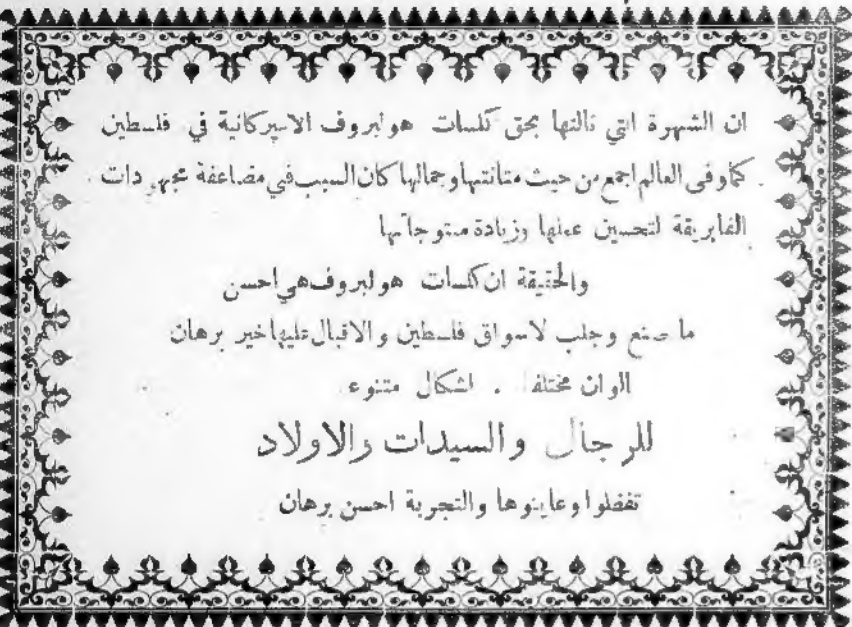 ان الشهرة التي نالتها بحق كلسات هولبروف الاميركانية في فلسطين
كما وفي العالم اجمع من حيث متانتها وجمالها كان السبب في مضاعفة مجهودات
الفابريقة لتحسين عملها وزيادة منتوجاتها
والحقيقة ان كلسات هولبروف هي احسن
ما صنع وجلب لاسواق فلسطين والاقبال عليها خير برهان
الوان مختلفة . اشكال متنوعة
للرجال والسيدات والاولاد
تفضلوا وعاينوها والتجربة احسن برهان